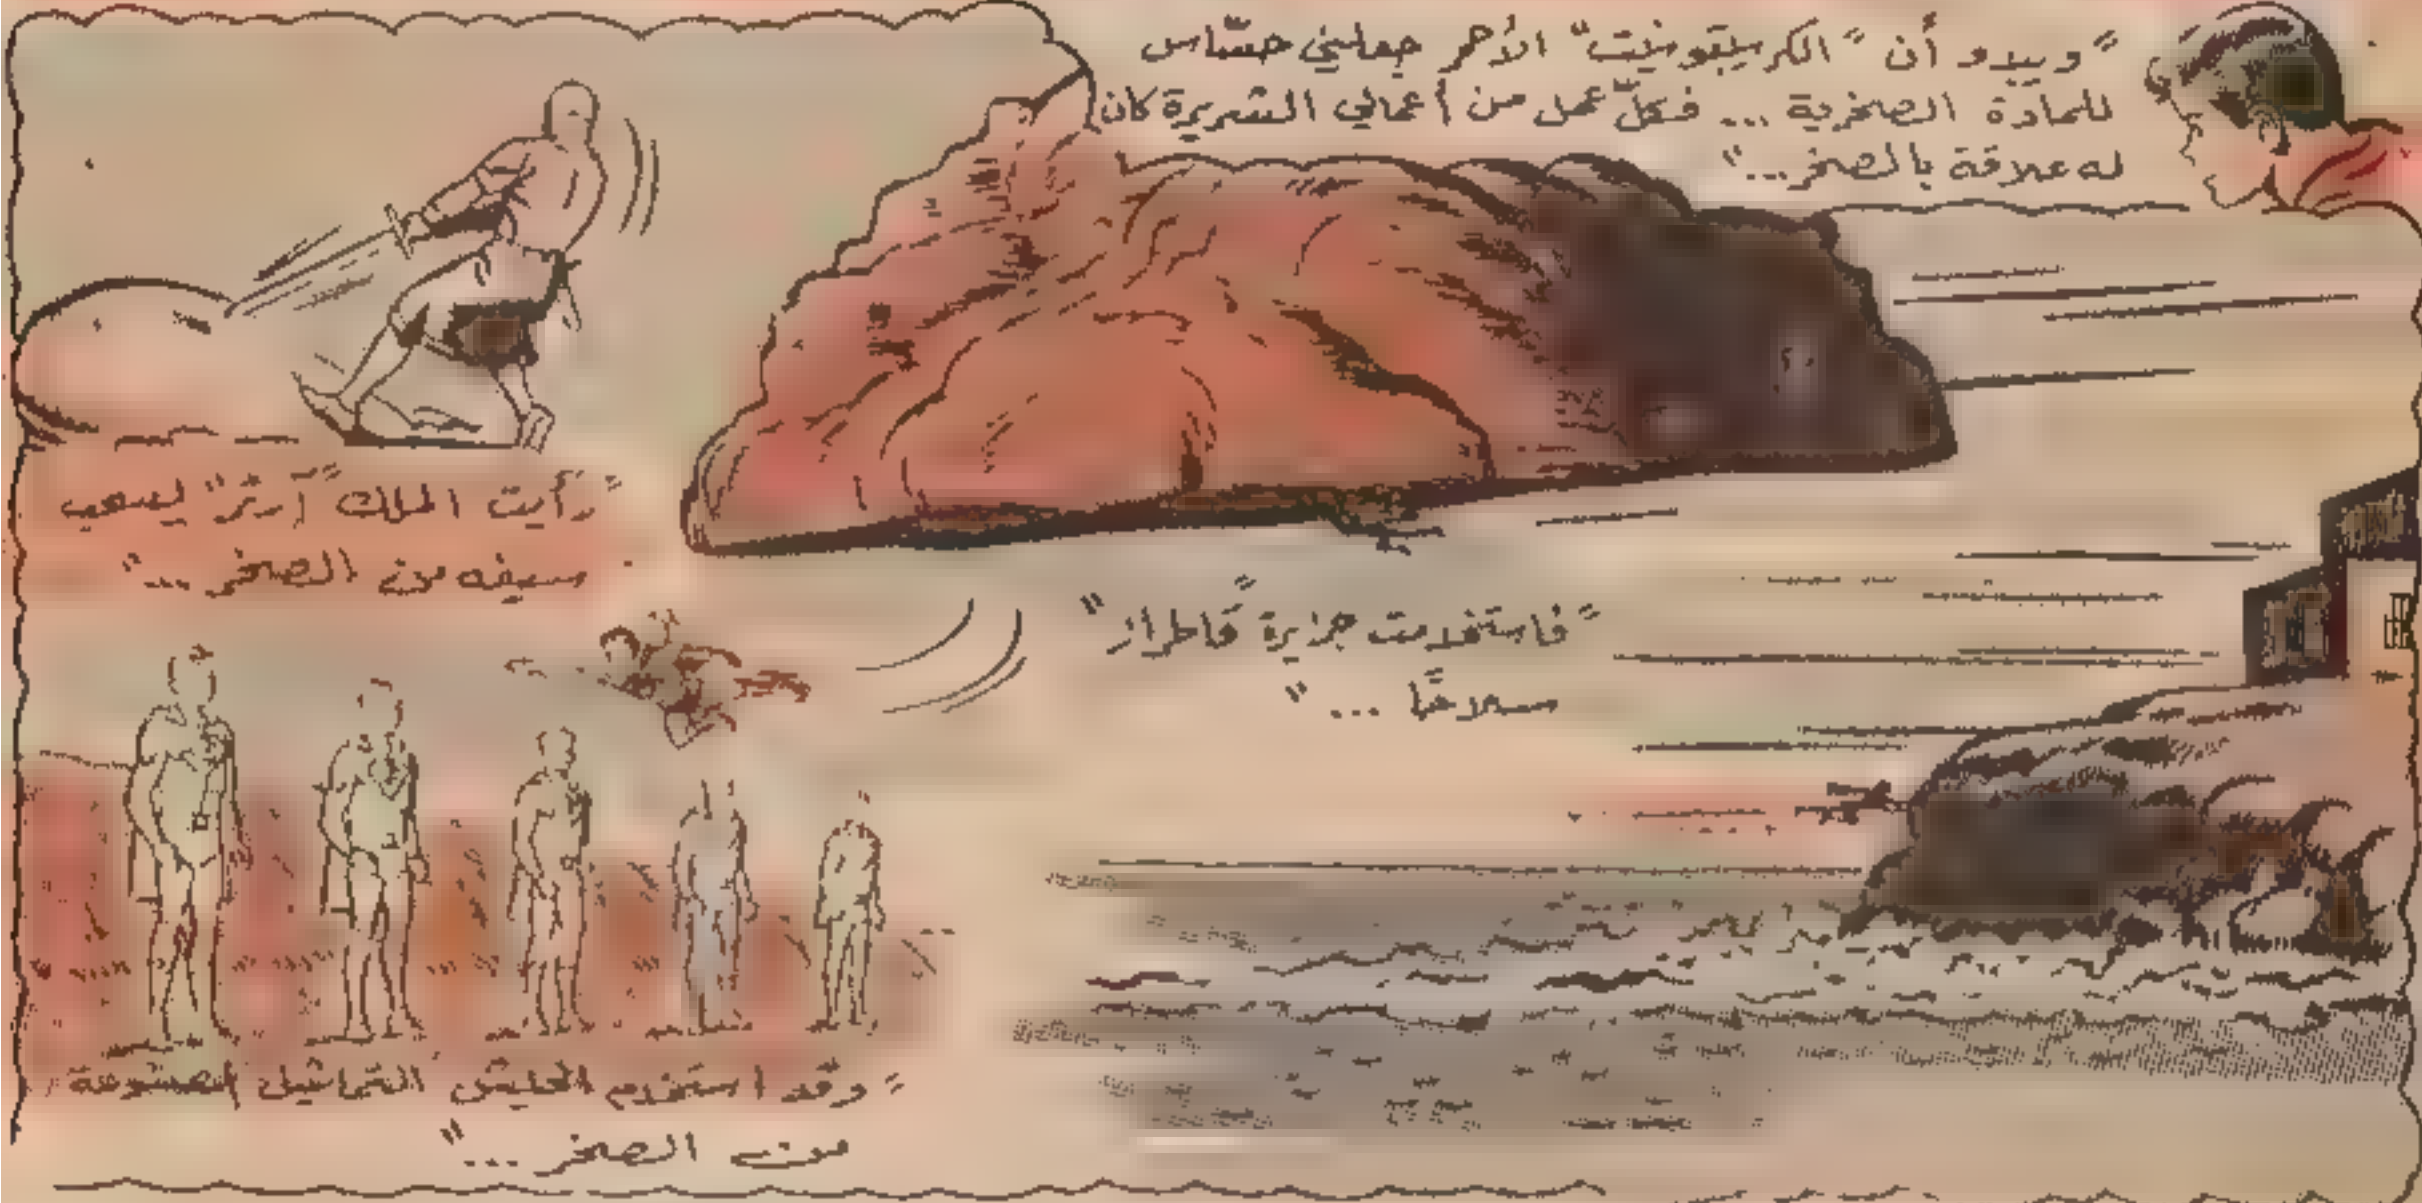 "ويبدو أن "الكريبتونيت" الأحمر جعلني حسّاس
للمادّة الصخرية ... فكلّ عمل من أعمالي الشريرة كان
له علاقة بالصخر..."
"رأيت الملك "آرثر" يسحب
سيفه من الصخر ..."
"فاستخدمت جزيرة "قاطراز"
سلاحًا ..."
"وقد استخدم الجيش التماثيل المصنوعة
من الصخر ..."